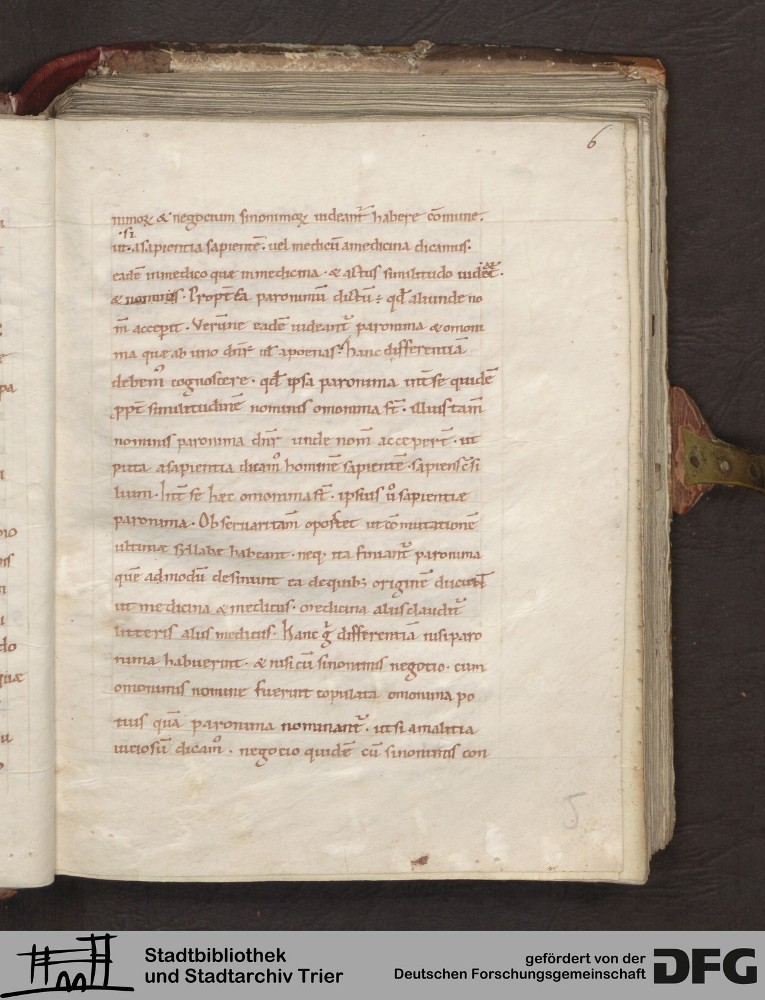 6
nimoꝝ & negocium sinonimoꝝ uideant᷑ habere cōmune.
si
ut asapientia sapientē. uel medicū amedicina dicamus.
eadē inmedico que inmedicina. & alt̾ius similitudo uidet᷑.
& nominis. Propt̾ea paronimū dictū: qd̄ aliunde no
m̄ accepit. Verūne eadē uideant᷑ paronima & omoni
ma quæ ab uno dn̄r Hanc differentiā
debem᷒ cognoscere. qd̄ ipsa paronima int̾ se quidē
ꝓpt̾ similitudinē nominis omonima st̄. illius tam̄
nominis paronima dn̄r unde nom̄ accepert̄. ut
puta asapientia dicam᷒ hominē sapientē. sapiens ɔ̄si
lium. Int̾ se hæc omonima st̄. ipsius u̾ sapientiæ
paronima. Obseruari tam̄ oportet ut cōmutationē
ultimæ syllabæ habeant. neq; ita finiant᷑ paronima
quē admodū desinunt ea dequib; originē ducunt
ut medicina & medicus. medicina alius claudit᷑
litteris alius medicus. Hanc g̊ differentiā nisi paro
nima habuerint. & nisi cū sinonimis negotio. cum
omonimis nomine fuerint copulata omonima po
tius quā paronima nominant᷑. ut si amalitia
uitiosū dicam᷒. negotio quidē cū sinonimis con
5
Stadtbibliothek
und Stadtarchiv Trier
gefördert von der
Deutschen Forschungsgemeinschaft
DFG